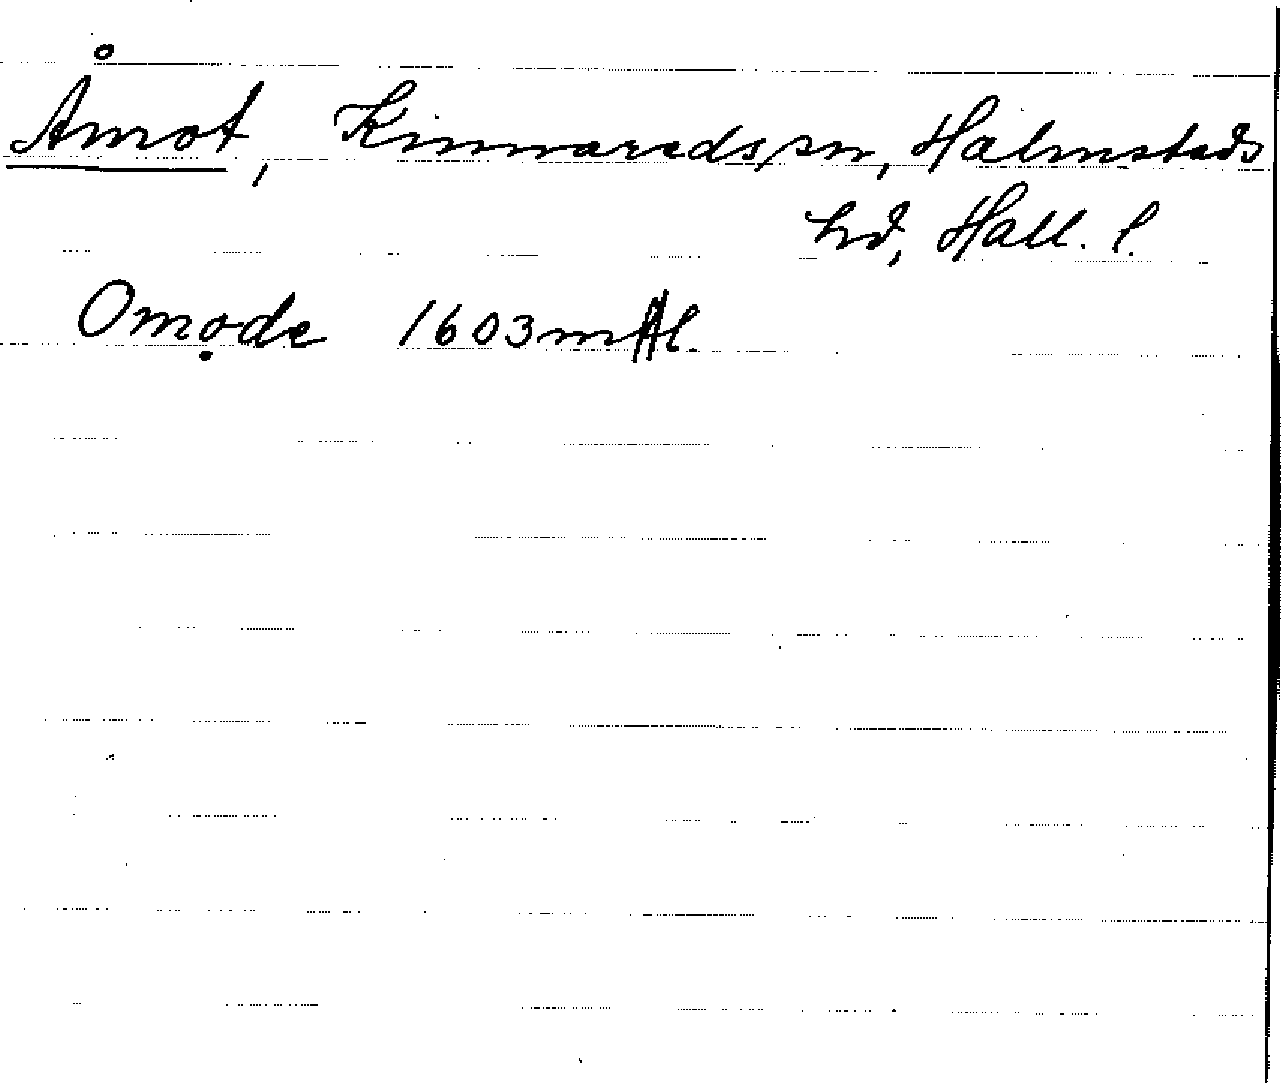 Åmot, Kinnareds sn, Halmstads
hd, Hall. l.
Omọde 1603 mtl.